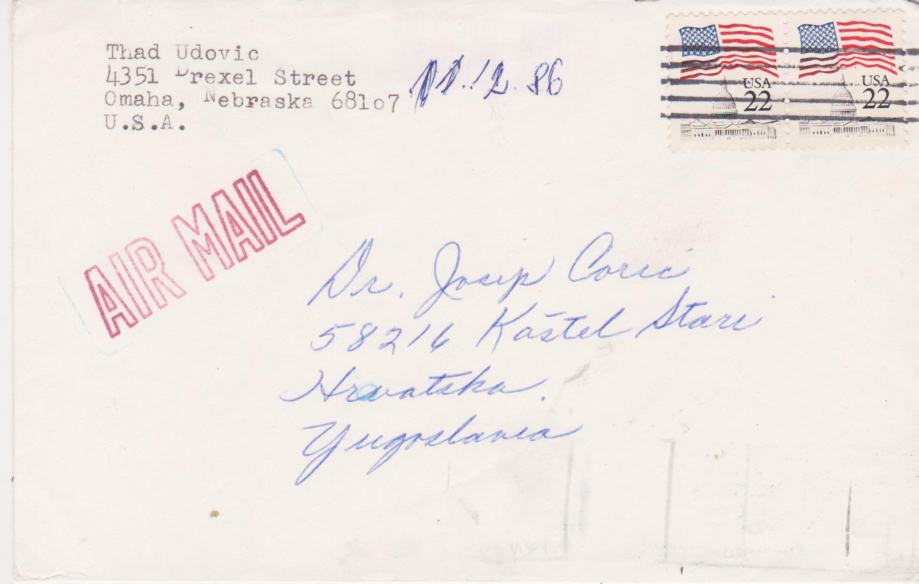 Thad Udovic
4351 Drexel Street
Omaha, Nebraska 68107
U.S.A.
11.12.86
USA
22
USA
22
AIR MAIL
Dr. Josip Coric
58216 Kaštel Stari
Hrvatska.
Yugoslavia